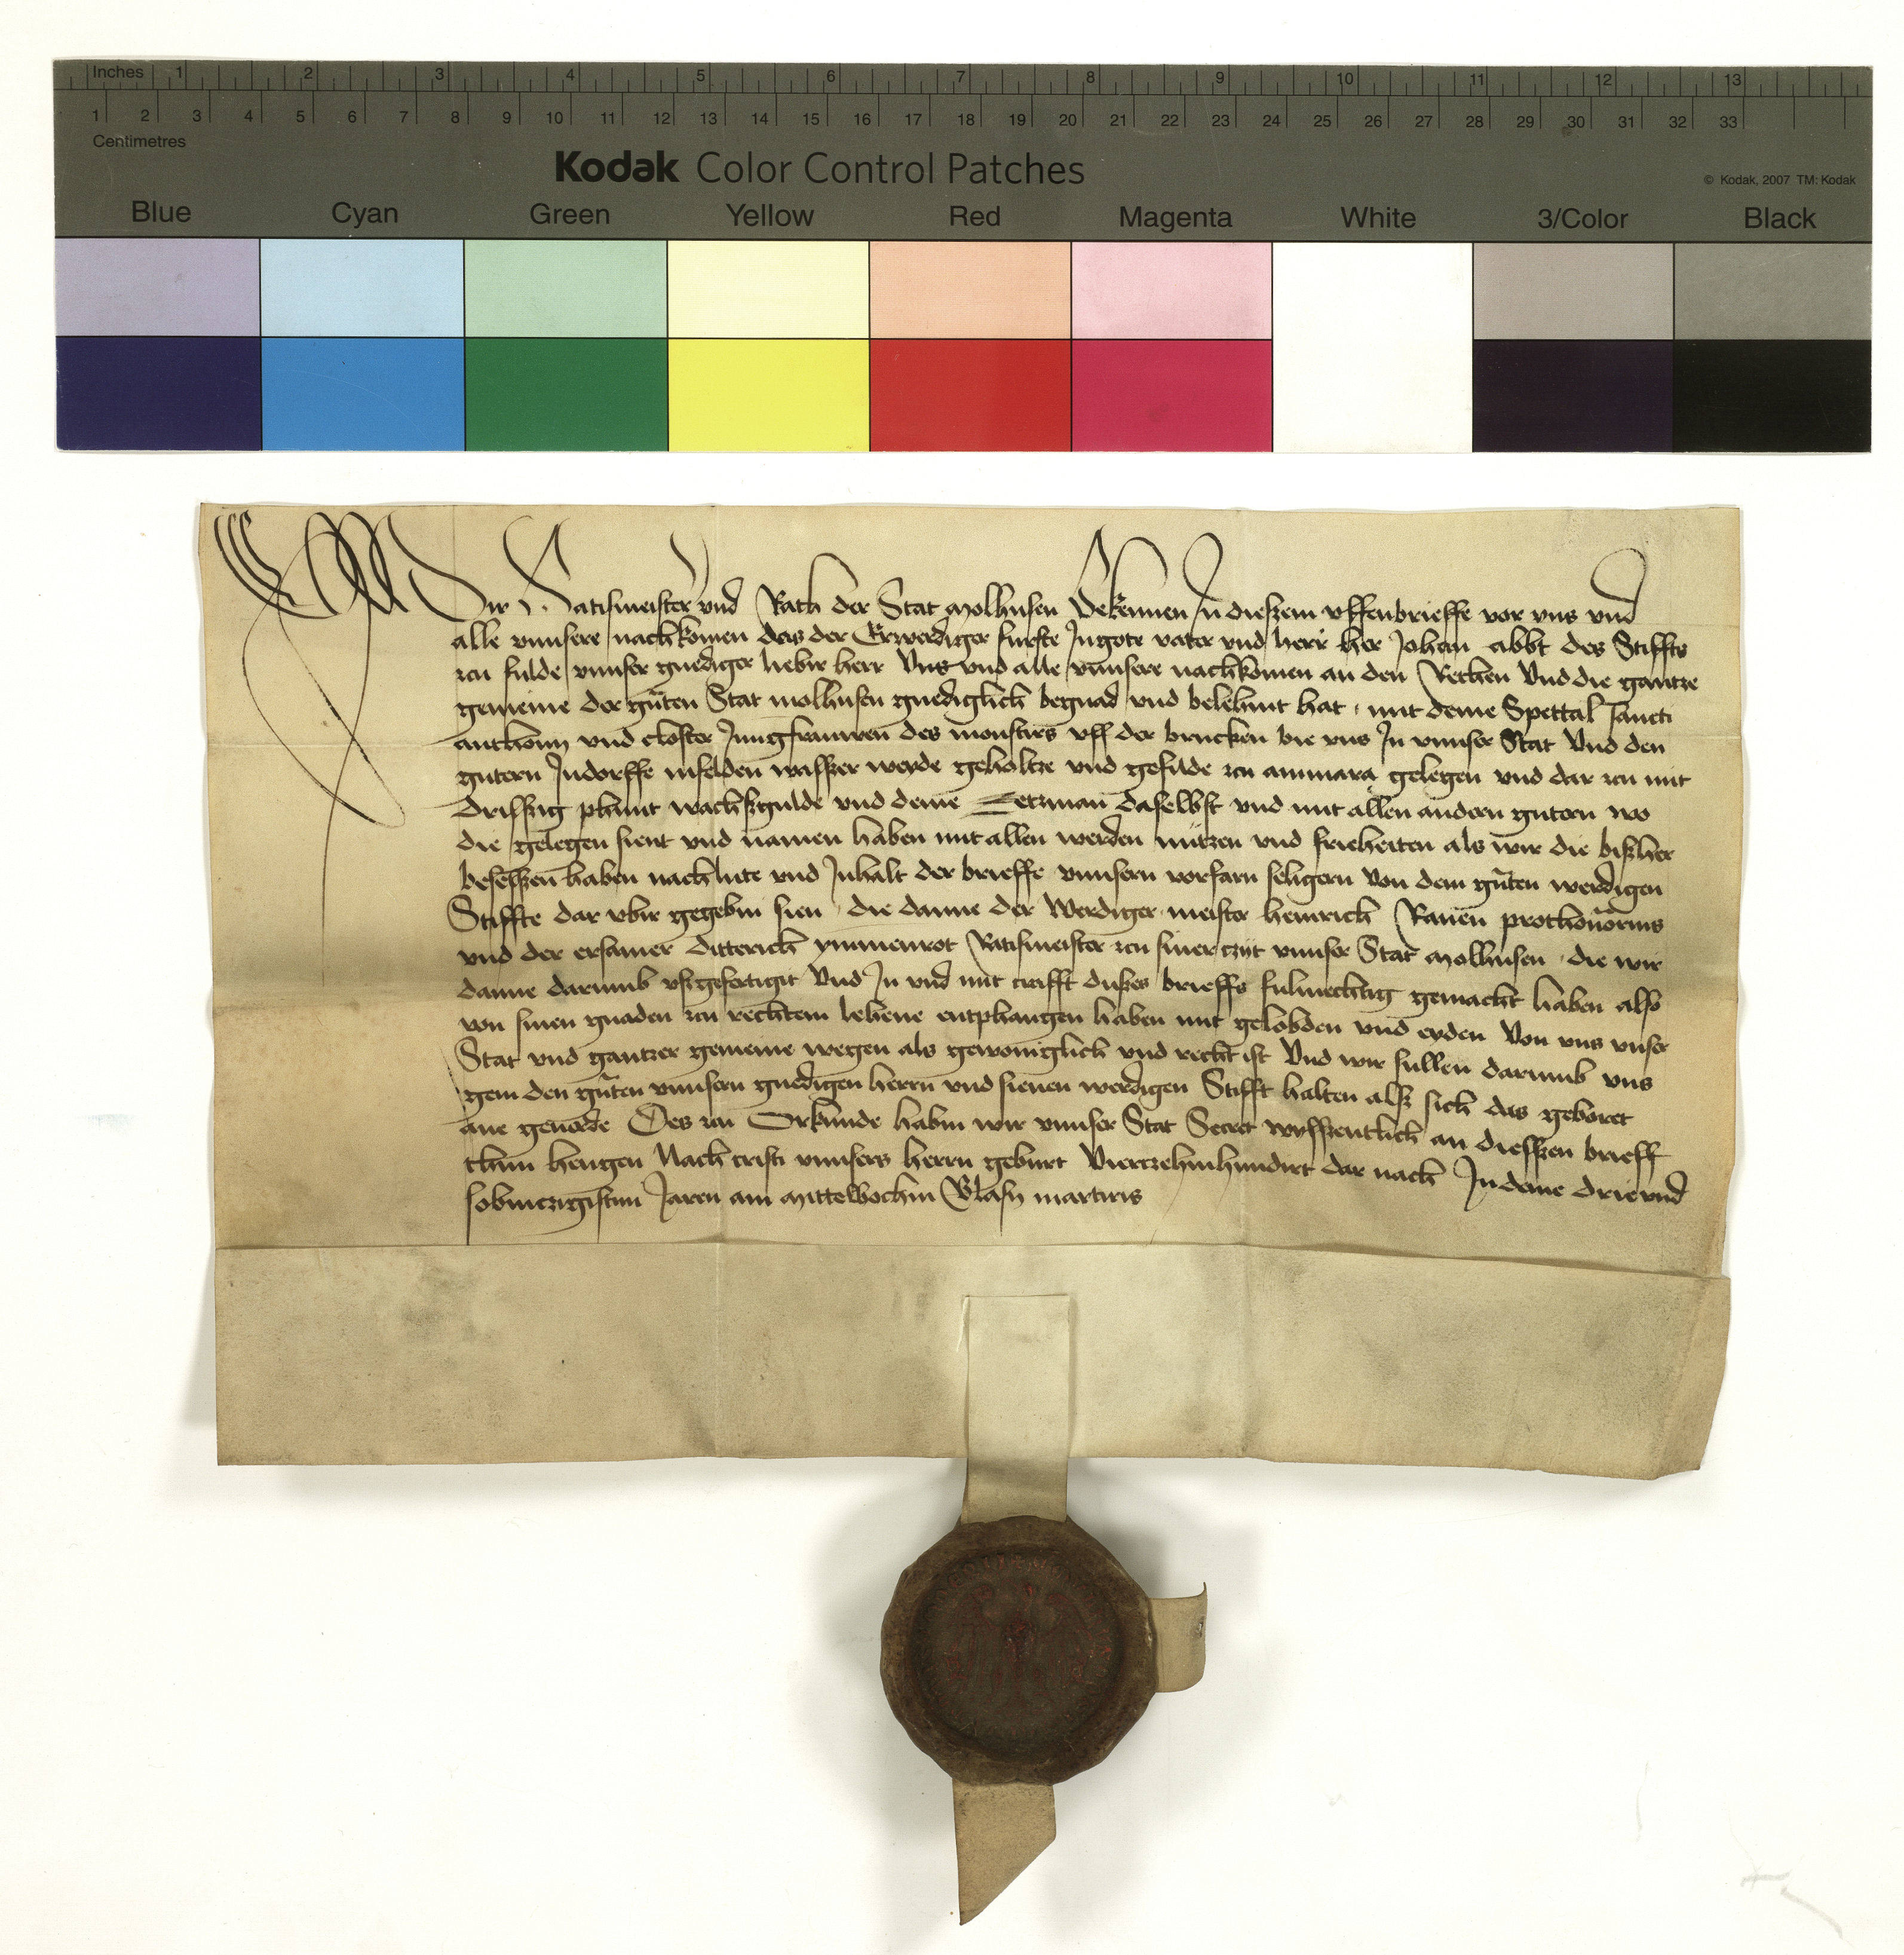 Inches 1 2 3 4 5 6 7 8 9 10 11 12 13
1 2 3 4 5 6 7 8 9 10 11 12 13 14 15 16 17 18 19 20 21 22 23 24 25 26 27 28 29 30 31 32 33
Centimetres
Kodak Color Control Patches
© Kodak, 2007 TM: Kodak
Blue Cyan Green Yellow Red Magenta White 3/Color Black
Wir Ratismeister und Rath der Stat Molhusen Bekennen In dieszem uffenbrieffe vor uns und
alle unnsere nachkomen das der Erwerdiger furste Ingote vater und herr her Johan abbt des Stiffts
zcu fulde unnser gnediger liebir herr Uns und alle unnsere nachkomen an den Rethen Und die gantze
gemeine der guten Stat molhusen gnediglich begnad und belehnt hat mit deme Spettal sancti
anthonii und closter Jungfrauwen des monsters uff der brucken bie uns In unnser Stat Und den
gutern Indorffe infelden wasszer weyde geholtze und gefilde zcu ammara gelegen und dar zcu mit
driszig phunt wachszgulde und deme daselbst und mit allen andern gutern wo
die gelegen sient und namen haben mit allen werden nutzen und frieheiten als wir die biszher
beseszen haben nach lute und Inhalt der brieffe unnsern vorfarn seligern Von dem guten werdigen
Stiffte dar ubir gegebin sien die danne der Werdiger meister heinrich Rauen
und der ersamer ditterich ymmenrot Ratismeister zcu siner czyt unnser Stat Molhusen die wir
danne darumb uszgefertigit Und In und mit crafft diszes brieffs fulmechtig gemacht haben also
von sinen gnaden zcu rechtem lehene entphangen haben mit gelobden und eyden Von uns unser
Stat und gantzer gemeine wegen als gewoniglich und recht ist Und wir sullen darumb uns
gein den guten unnsern gnedigen herrn und sienen werdigen Stifft halten alsz sich das geboret
ane geuerde Des zcu Orkunde habin wir unnser Stat Secret wyszentlich an dieszen brieff
thun hengen Nach cristi unnsers herrn geburt Viertzehinhundirt dar nach In deme drie und
sobinczigistim Jaren am Mittewochin Blasii martiris